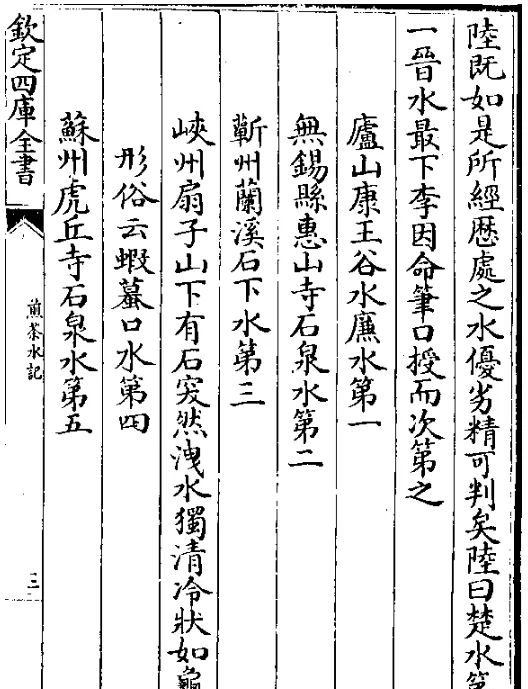 陸既如是所經歴處之水優劣精可判矣陸曰楚水第
一晉水最下李因命筆口授而次第之
廬山康王谷水廉水第一
無錫縣惠山寺石泉水第二
蘄州蘭溪石下水第三
峽州扇子山下有石突然洩水獨清冷狀如龜
形俗云蝦蟇口水第四
蘇州虎丘寺石泉水第五
欽定四庫全書
煎茶水記
三